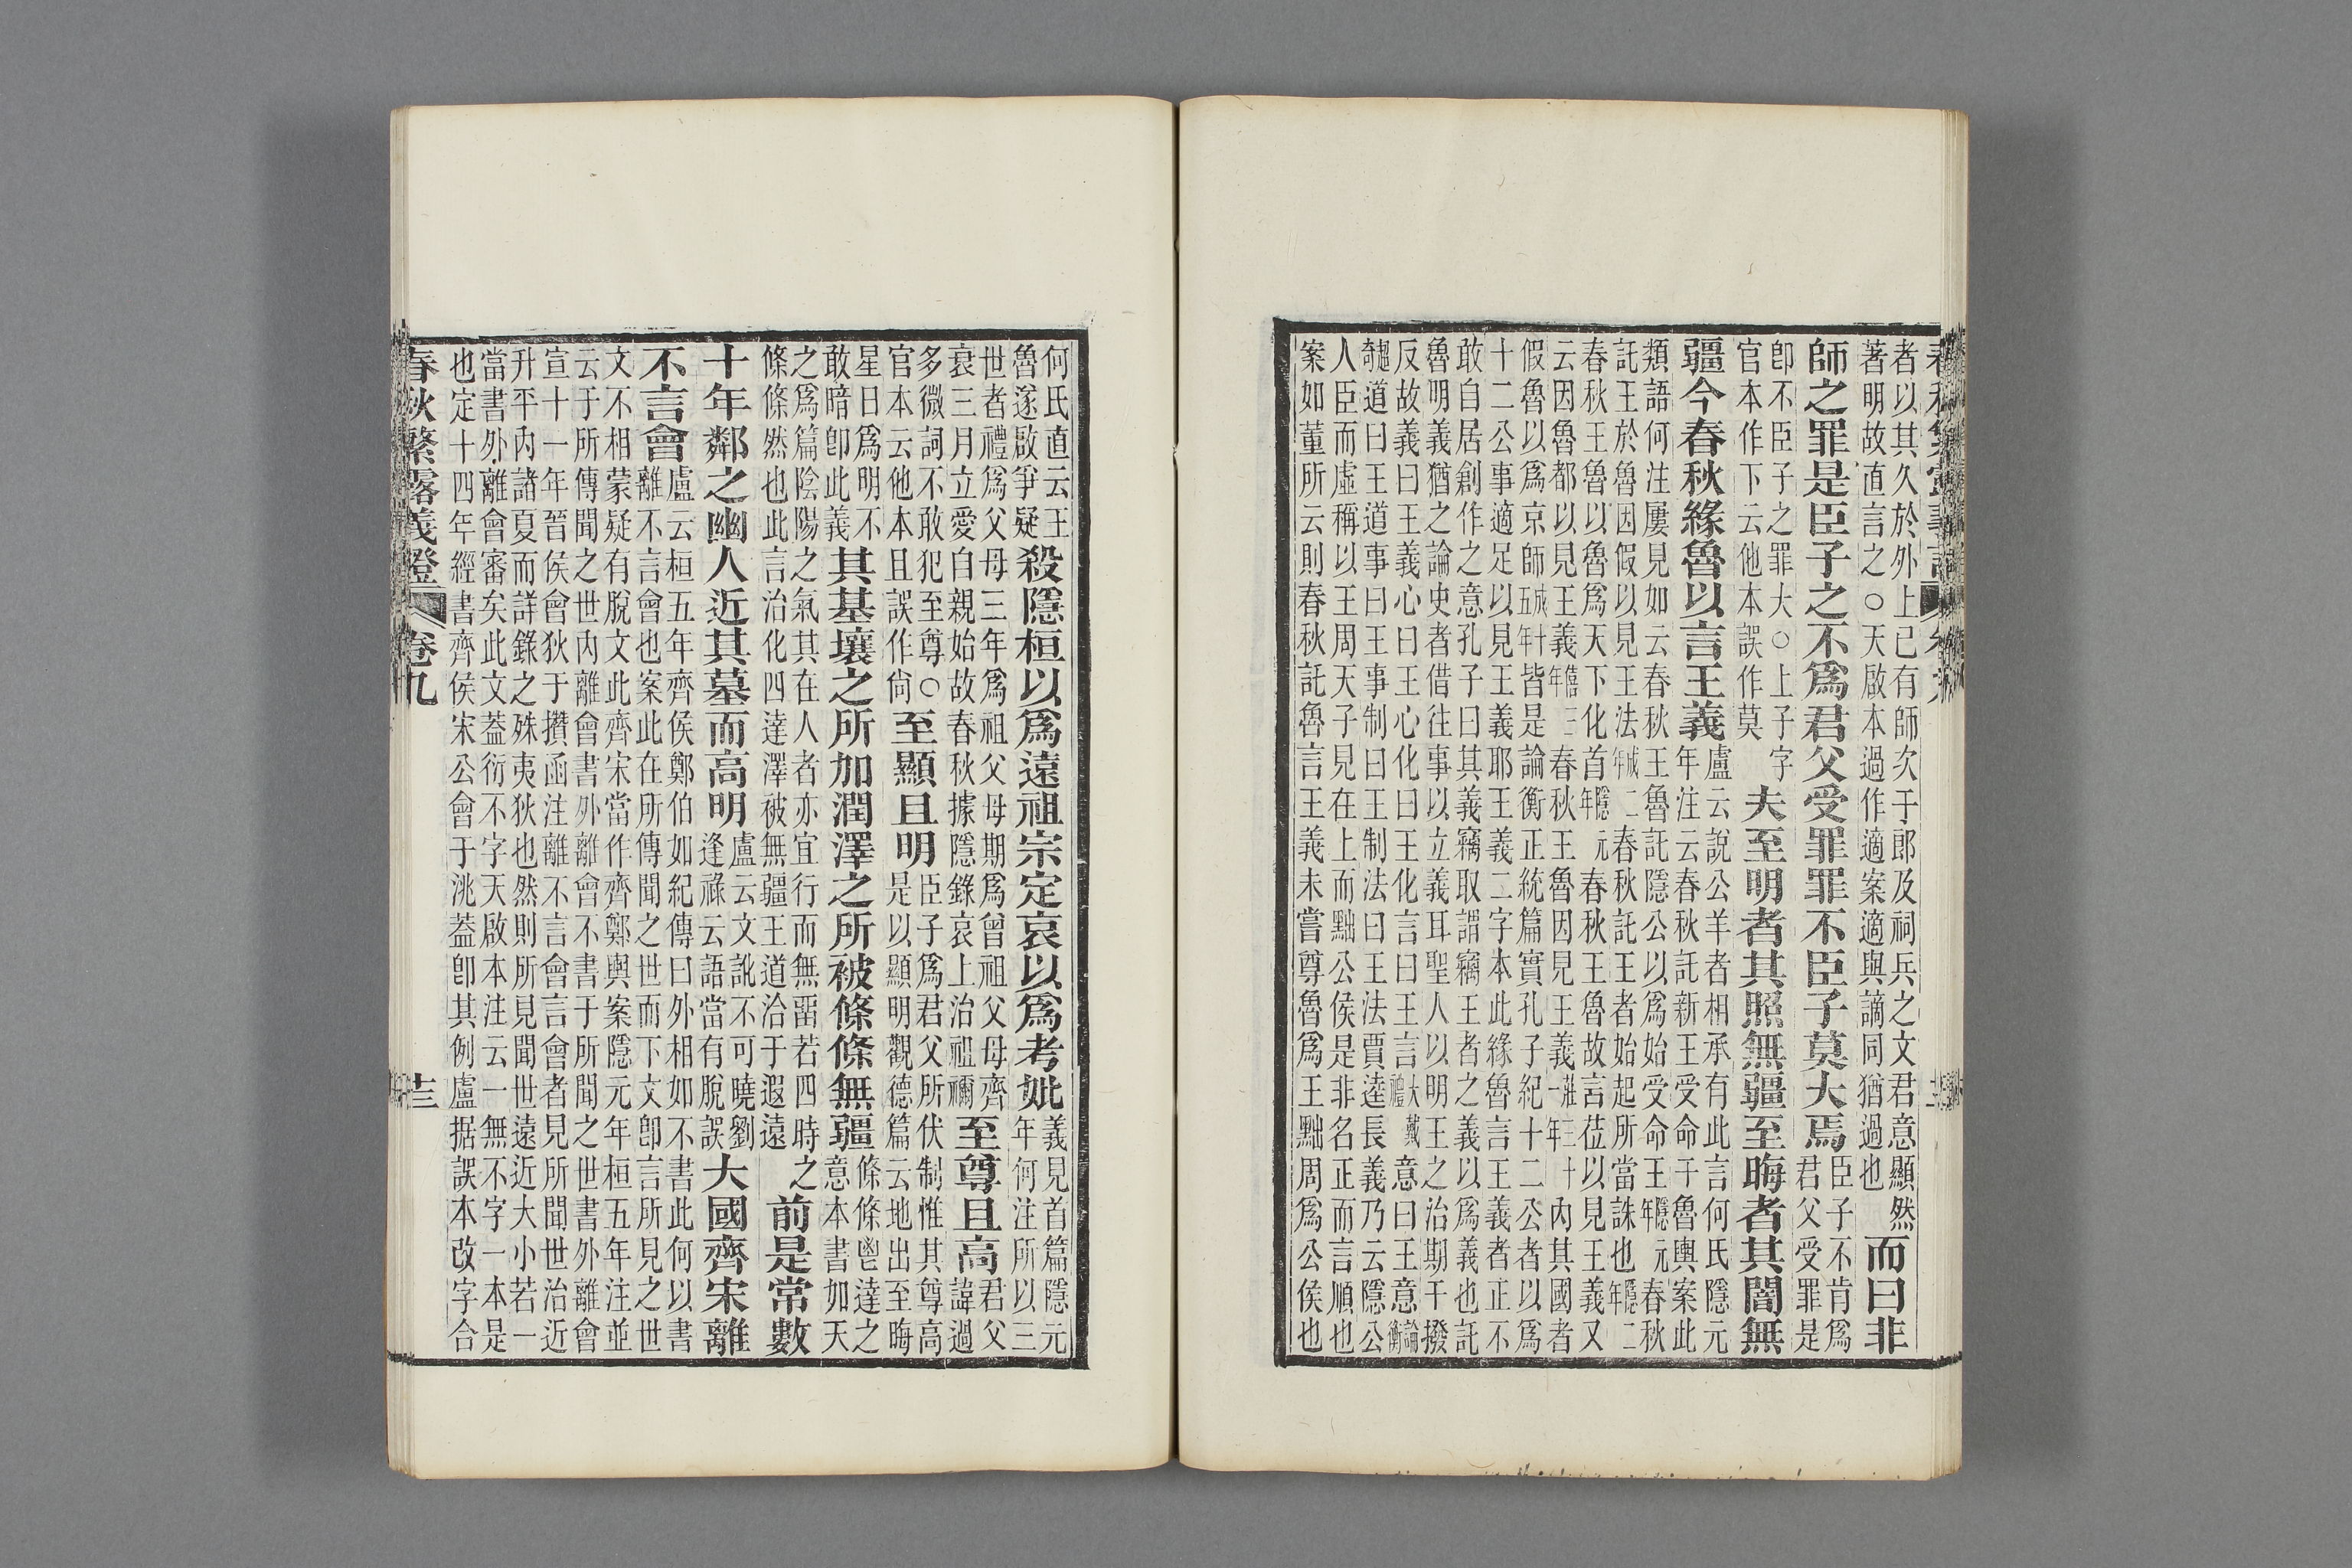 者以其久於外上已有師次于郎及祠兵之文君意顯然
著明故直言之○天啟本過作適案適與謫同猶過也
而曰非
師之罪是臣子之不爲君父受罪罪不臣子莫大焉
臣子不肯爲
君父受罪是
卽不臣子之罪大○上子字
官本作下云他本誤作莫
夫至明者其照無疆至晦者其闇無
疆今春秋緣魯以言王義
盧云說公羊者相承有此言何氏隱元
年注云春秋託新王受命于魯輿案此
類語何注屢見如云春秋王魯託隱公以爲始受命王隱元年春秋
託王於魯因假以見王法成二年春秋託王者始起所當誅也隱二年
春秋王魯以魯爲天下化首隱元年春秋王魯故言莅以見王義又
云因魯都以見王義僖三年春秋王魯因見王義莊三十一年內其國者
假魯以爲京師成十五年皆是論衡正統篇實孔子紀十二公者以爲
十二公事適足以見王義耶王義二字本此緣魯言王義者正不
敢自居創作之意孔子曰其義竊取謂竊王者之義以爲義也託
魯明義猶之論史者借往事以立義耳聖人以明王之治期于撥
反故義曰王義心曰王心化曰王化言曰王言大戴禮意曰王意論衡
超奇道曰王道事曰王事制曰王制法曰王法賈逵長義乃云隱公
人臣而虛稱以王周天子見在上而黜公侯是非名正而言順也
案如董所云則春秋託魯言王義未嘗尊魯爲王黜周爲公侯也
何氏直云王
魯遂啟爭疑
殺隱桓以爲遠祖宗定哀以爲考妣
義見首篇隱元
年何注所以三
世者禮爲父母三年爲祖父母期爲曾祖父母齊
衰三月立愛自親始故春秋據隱錄哀上治祖禰
至尊且高
君父
諱過
多微詞不敢犯至尊○
官本云他本且誤作尙
至顯且明
臣子爲君父所伏制惟其尊高
是以顯明觀德篇云地出至晦
星日爲明不
敢暗卽此義
其基壤之所加潤澤之所被條條無疆
條條鬯達之
意本書如天
之爲篇陰陽之氣其在人者亦宜行而無畱若四時之
條條然也此言治化四達澤被無疆王道洽于遐遠
前是常數
十年鄰之幽人近其墓而高明
盧云文訛不可曉劉
逢祿云語當有脫誤
大國齊宋離
不言會
盧云桓五年齊侯鄭伯如紀傳曰外相如不書此何以書
離不言會也案此在所傳聞之世而下文卽言所見之世
文不相蒙疑有脫文此齊宋當作齊鄭輿案隱元年桓五年注並
云于所傳聞之世內離會書外離會不書于所聞之世書外離會
宣十一年晉侯會狄于攢函注離不言會言會者見所聞世治近
升平內諸夏而詳錄之殊夷狄也然則所見聞世遠近大小若一
當書外離會審矣此文蓋衍不字天啟本注云一無不字一本是
也定十四年經書齊侯宋公會于洮蓋卽其例盧据誤本改字合
春秋繁露義證
卷九
十三